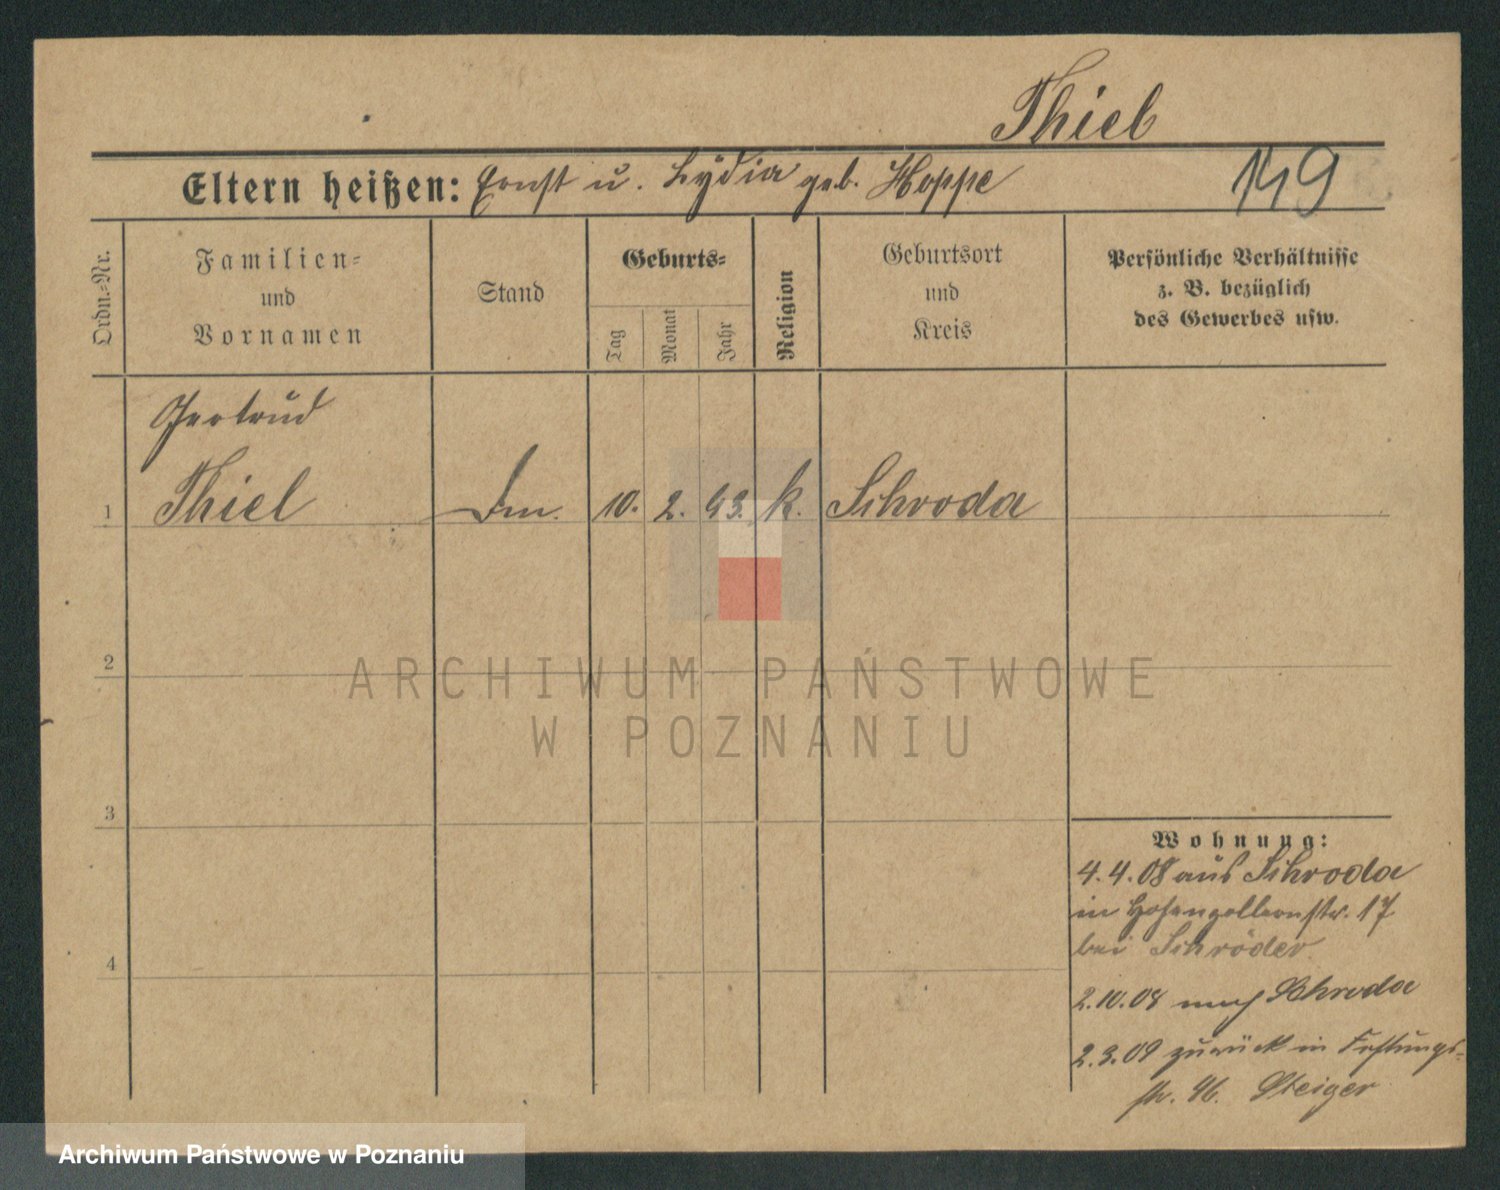 Thiel
Eltern heißen: Ernst u. Lydia geb. Hoppe
149
Ordn.-Nr.
Familien-
und
Vornamen
Stand
Geburts-
Tag
Monat
Jahr
Religion
Geburtsort
und
Kreis
Persönliche Verhältnisse
z. B. bezüglich
des Gewerbes usw.
Gertrud
1 Thiel 10. 2. 93. k. Schroda
2
ARCHIWUM PAŃSTWOWE
W POZNANIU
3
Wohnung:
4.4.08 aus Schroda
in Hohenzollernstr. 17
bei Schröder.
4
2.10.08 nach Schroda
2.3.09 zurück in Festungs-
str. 46. Steiger
Archiwum Państwowe w Poznaniu